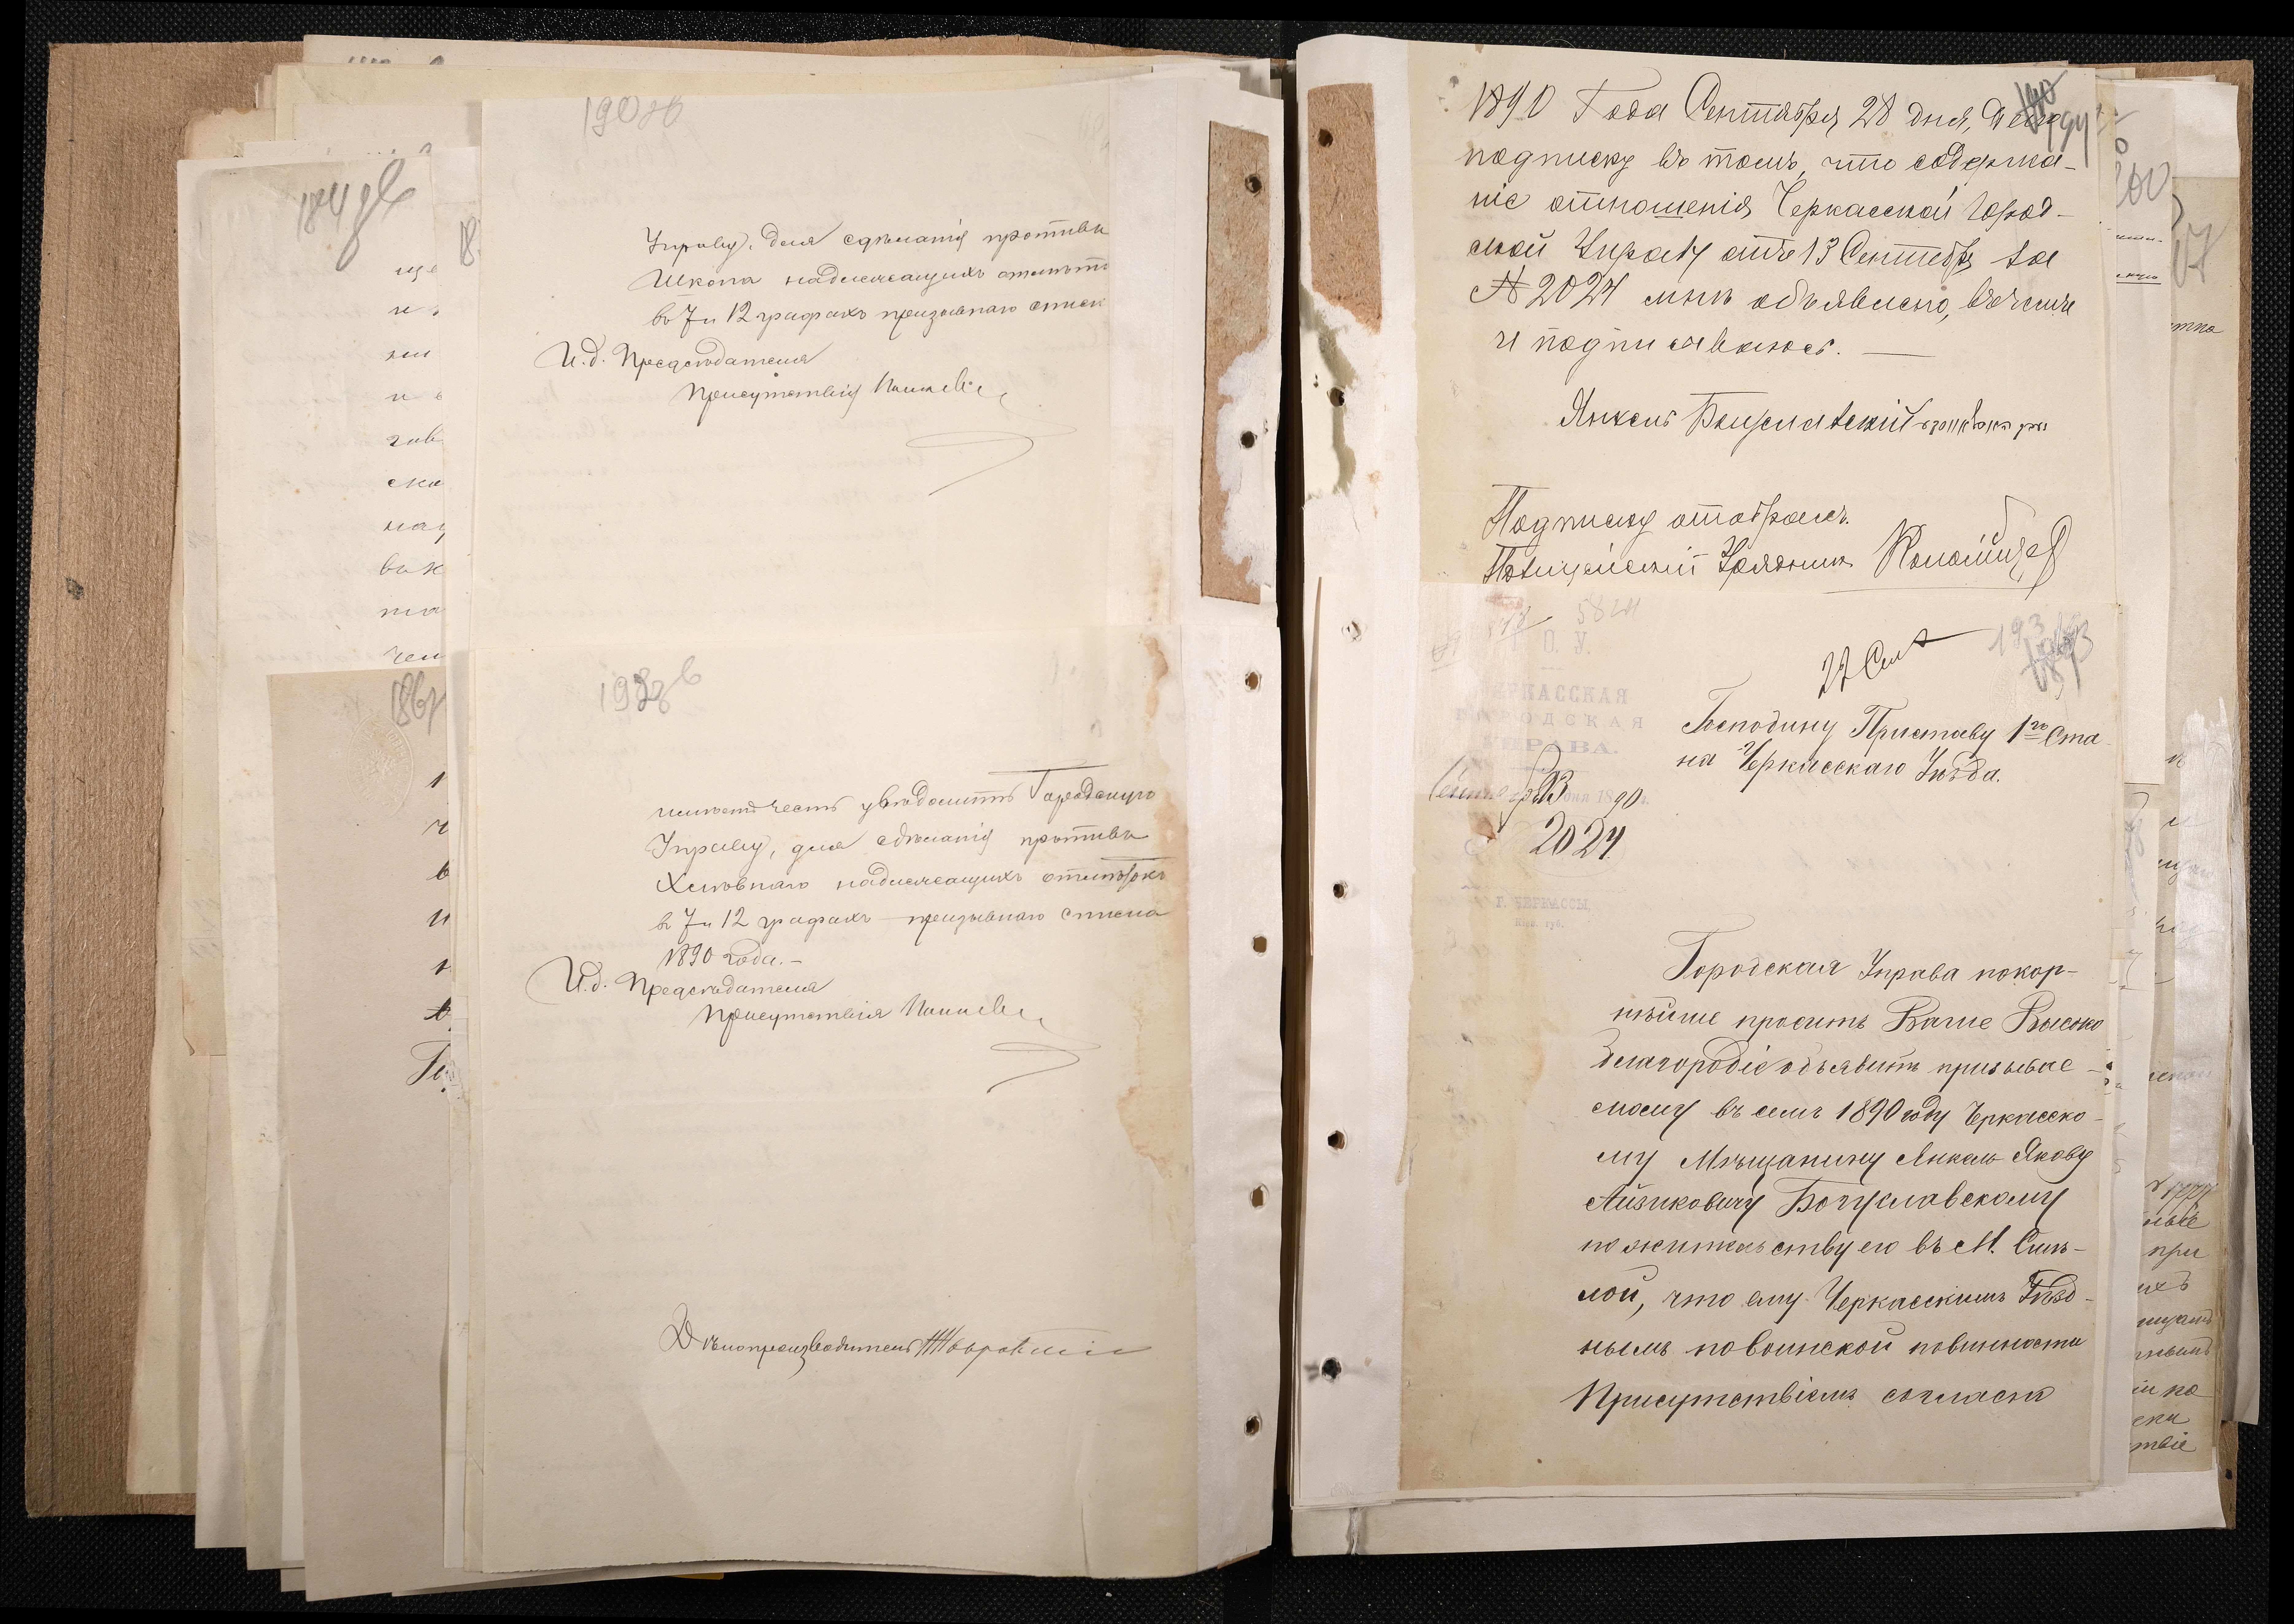 190 об
Управу, для сдѣланія противъ
Школа надлежащихъ отмѣто
въ 7 и 12 графахъ призывнаго списк
И. д. Предсѣдателя
Присутствія
193 об
имѣетъ честь увѣдомить Городскую
Управу, для сдѣланія противъ
надлежащихъ отмѣтокъ
въ 7 и 12 графахъ призывнаго списка
1890 года.—
И. д. Предсѣдателя
Присутствія
Дѣлопроизводитель
184 об
186
1890 Года Сентября 28 дня, Я
194
подписку въ томъ, что содержа-
ніе отношенія Черкасской Город-
ской Управы отъ 13 Сентября за
№ 2024 мнѣ объявлено, въ чемъ
и подписываюсь. —
Янкель Богуславскій
Подписку отобралъ
Полицейскій Урядникъ Коломіецъ
5824
О. У.
22 Сент
193
ЧЕРКАССКАЯ
ГОРОДСКАЯ
УПРАВА.
Сентября 13 дня 1890 г.
2024
Г. ЧЕРКАССЫ,
Кіев. губ.
Господину Приставу 1го Ста-
на Черкасскаго Уѣзда.
Городская Управа покор-
нѣйше проситъ Ваше Высоко
благородіе объявить призывае-
мому въ семъ 1890 году Черкасско-
му Мѣщанину Янкелю Якову
Айзиковичу Богуславскому
по жительству его въ М. Смѣ-
лой, что ему Черкасскимъ Уѣзд-
нымъ по воинской повинности
Присутствіемъ согласно